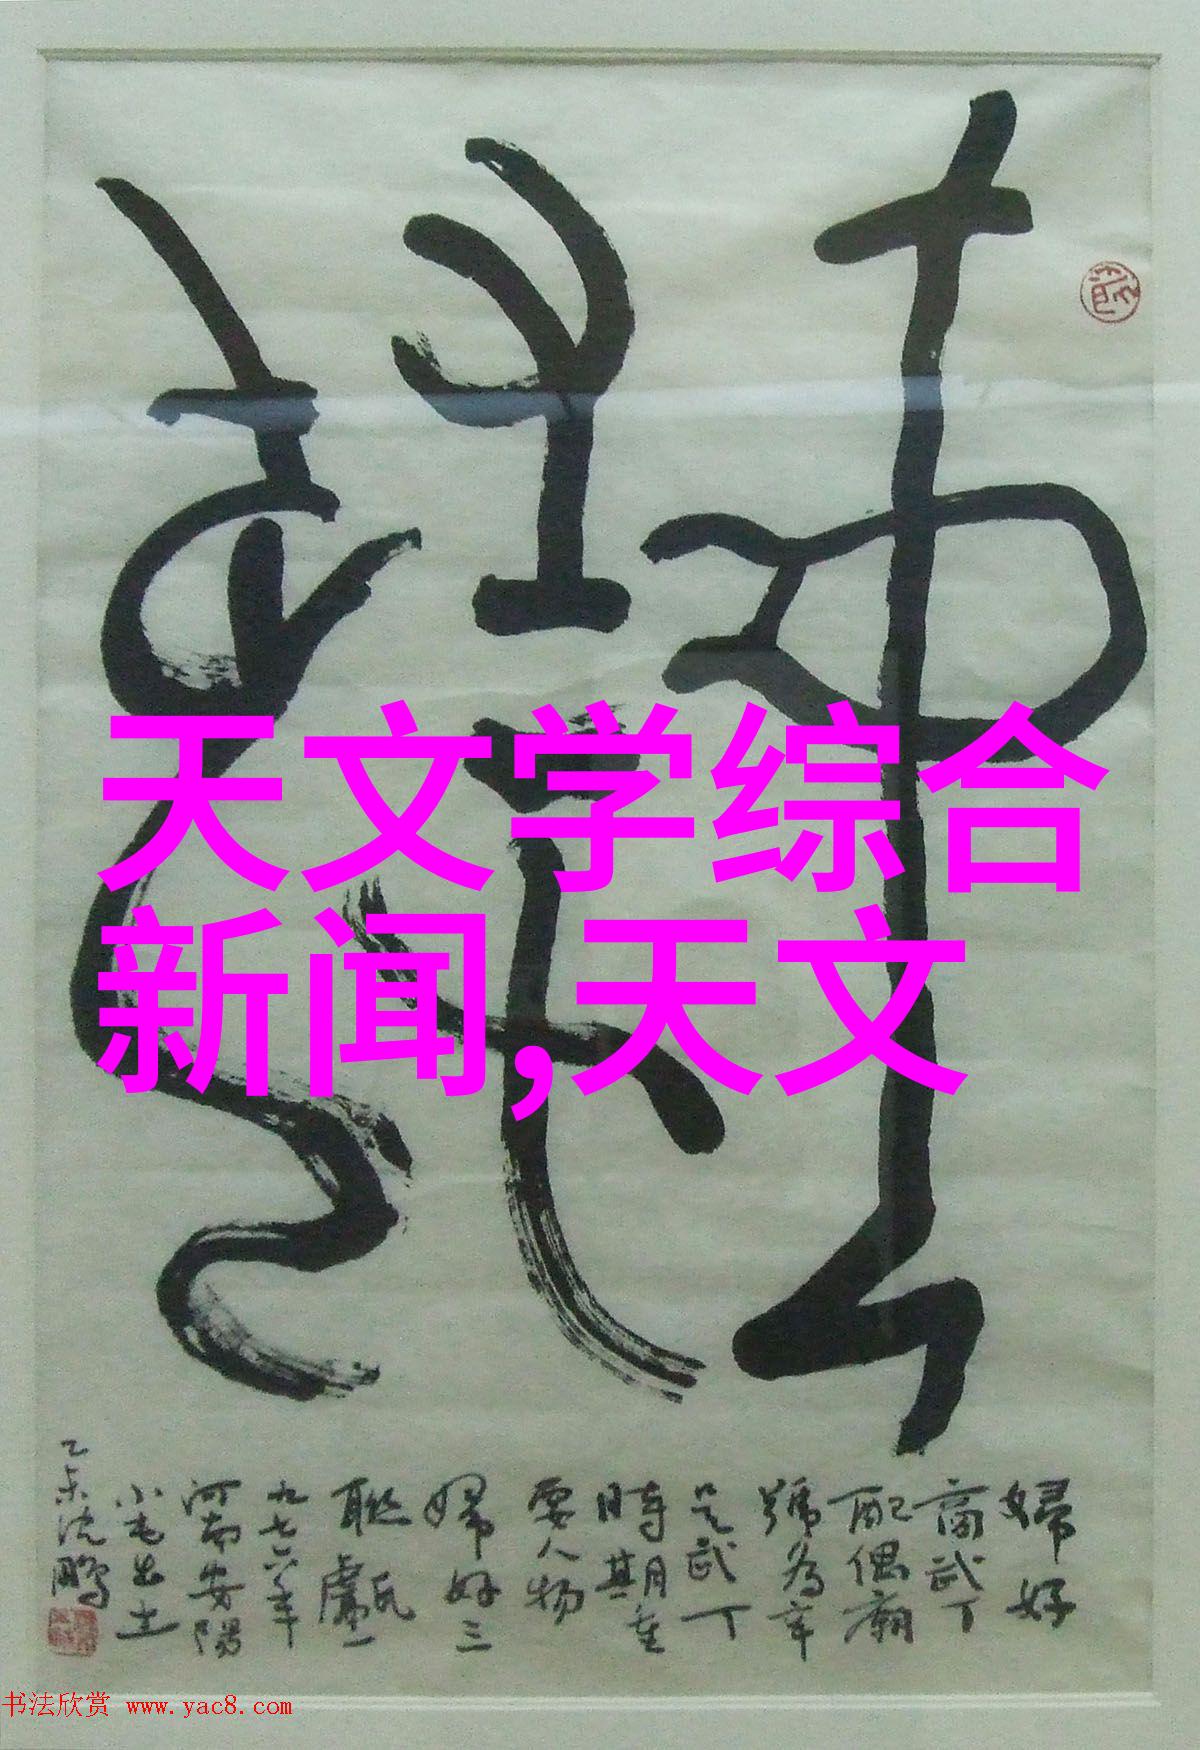 天文学综合
新闻,天文
婦好
商武丁
配偶廟
號为辛
是武丁
時期重
要人物
婦好三
联甗一
九七六年
河南安陽
小屯出土
乙未沈鹏
书法欣赏 www.yac8.com